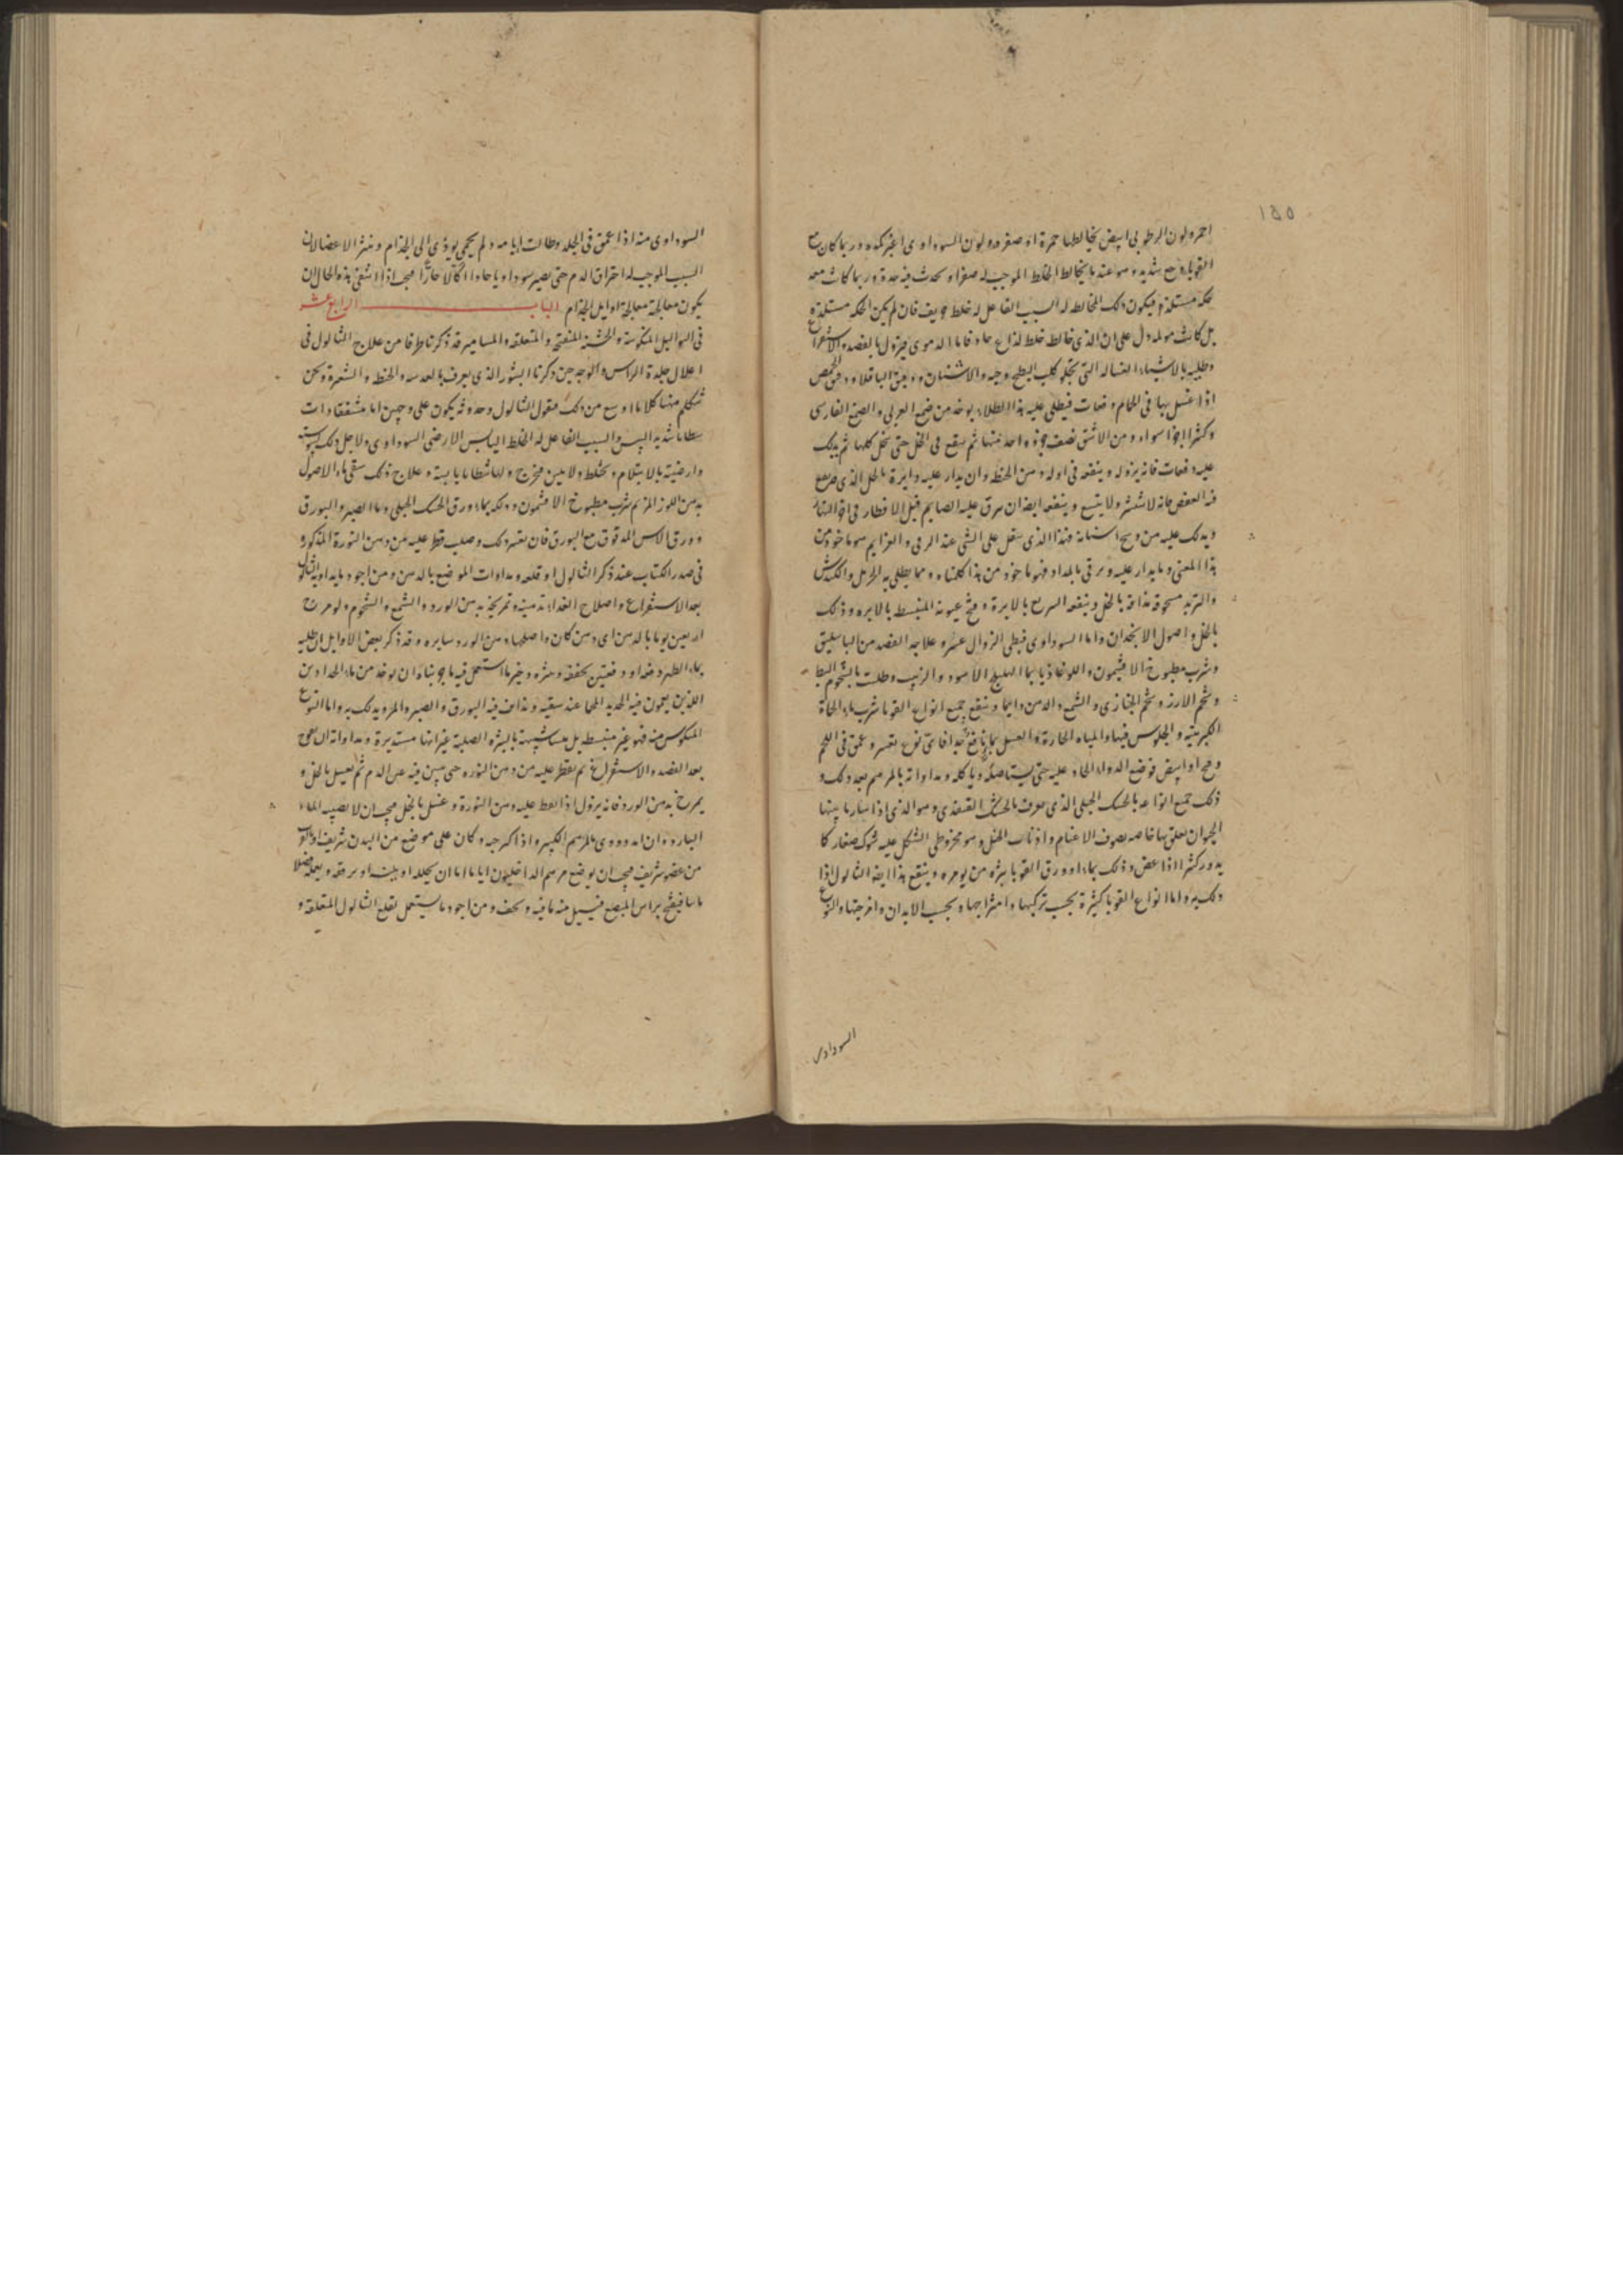 ١٥٥
احمر ولون الرطوبى ابيض يخالطها حمرة او صفرة ولون السوداوى اغبر كمد وربما كان مع
القوبا وجع شديد وهو عند ما يخالط الخلط الموجب له صفراء تحدث فيه حدة وربما كانت معه
حكة مستلذة فيكون ذلك المخالط له السبب الفاعل له خلط حريف فان لم يكن الحكة مستلذة
بل كانت مولمة دل على ان الذى خالطه خلط لذاع حاد فاما الدموى فيزول بالفصد والاستفراغ
وطليه بالاشياء الغسالة التى تجلو كلب البطيخ وحبه والاشنان ودقيق الباقلاء ودقيق الحمص
اذا غسل بها فى الحمام دفعات فيطلى عليه هذا الطلاء يوخذ من صمغ العربى والصمغ الفارسى
وكثيرا اجزا سواء ومن الاشق نصف جزء واحد منها ثم ينقع فى الخل حتى ينحل كلها ثم يدلك
عليه دفعات فانه يزوله وينفعه فى اوله دهن الحنطة وان يدار عليه دايرة بالخل الذى
فيه العفص فانه لا ينتشر ولا يتسع وينفعه ايضا ان يبزق عليه الصايم قبل الافطار فى
ويدلك عليه من وسخ اسنانه فهذا الذى يتفل على الشى عند الرقى والعزايم هو ماخوذ من
هذا المعنى وما يدار عليه ويرقى بالمداد فهو ماخوذ من هذا كلتاه ومما يطلى به الحرمل والكندش
والتربد مسحوقة مذافة بالخل وينفعه السريع بالابرة وفتح عيونه المنبسط بالابره وذلك
بالخل واصول الانجدان واما السوداوى فبطى الزوال عسره علاجه الفصد من الباسليق
وشرب مطبوخ الافتيمون واللوغاذيا بما الهليلج الاسود والزبيب وطليت بالشحوم البط
وشحم الاوز وشحم الخنازير والشمع والدهن دايما وينفع جميع انواع القوبا شرب ماء الحماة
الكبريتية والجلوس فيها والمياه الحارة والغسل بها نافع جدا فاى نوع تعسر وعمق فى اللحم
وقح او ابيض فوضع الدواء الحاد عليه حتى يستاصله وياكله ومداواته بالمرهم بعد ذلك و
ذلك جميع انواعه بالحسك الجبلى الذى يعرف بالحسك القنفذى وهو الذى اذا سار ما بينها
الحيوان تعلق بها خاصه بصوف الاغنام واذناب الخيل وهو مخروطى الشكل عليه شوك صغار كا
يدور كثيرا اذا عض وذلك بماء وورق القوبا يبره من يومره وينفع هذا ايضا الثالول اذا
دلك به واما انواع القوبا كثيرة بحسب تركبها وامتزاجها وبحسب الابدان وامزجتها والنوع
السوداوى
السوداوى منه اذا عمق فى الجلد وطالت ايامه ولم يحمى يودى الى الجذام ونثر الاعضا لان
السبب الموجب له احتراق الدم حتى يصير سوداويا حادا اكالا حارا فيجب اذا اشفى بذه الحال ان
يكون معالجة معالجة اوايل الجذام الباب الرابع عشر
فى الثواليل المنكوسة والخشنة المنفتحة والمتعلقة والمسامير قد ذكرنا طرفا من علاج الثالول فى
اعلال جلدة الراس والوجه حين ذكرنا البثور الذى يعرف بالعدسه والحنطه والشعرة ونحن
نتكلم منها كلاما اوسع من ذلك فنقول الثالول وحدوثه يكون على وجهين اما متشققا ذات
شظايا شديد اليبس والسبب الفاعل له الخلط اليابس الارضى السوداوى ولاجل ذلك يبوسته
وارضيته بالابتلام وتخلط ولا يبين فيخرج ولها شظايا يابسة وعلاج ذلك سقى ماء الاصول
بدهن اللوز المر ثم شرب مطبوخ الافتيمون ودلكه بماء ورق الحسك الجبلى وما الصبر والبورق
وورق الاس المدقوق مع البورق فان تعسر ذلك وصلب قطر عليه من دهن النورة المذكور
فى صدر الكتاب عند ذكر الثالول او قلعه ومداوات الموضع بالدهن ومن اجود ما يداوى الثالول
بعد الاستفراغ واصلاح الغذا تدهينه وتمريخه بدهن الورد والشمع والشحوم ولو مرخ
اربعين يوما بالدهن اى دهن كان واصلها دهن الورد سايره وقد ذكر بعض الاوايل ان طليه
بماء دفعة او دفعتين يجففه وينثره وخير ما استعمل فيه ما جربناه ان يوخذ من ماء الحدادين
الذين يطفون فيه الحديد المحما عند سقيه ويذاف فيه البورق والصبر والمر ويدلك به واما النوع
المنكوس منه فهو غير منبسط بل شبيهة بالبثره الصلبة غير انها مستديرة ومداواته ان
بعد الفصد والاستفراغ ثم يقطر عليه من دهن النوره حتى يبين فيه عين الدم ثم يغسل بالخل و
يمرخ بدهن الورد فانه يزول اذا قطر عليه دهن النورة وغسل بالخل فيجب ان لا يصيبه الماء
البارد وان دووى بالمرهم الكبير واذا كبر جرمه وكان على موضع من البدن شريف او قرب
من عضو شريف فيجب ان يوضع مرهم الداخليون اياما اما ان يحلله او يلينه او يرققه ويعمله
فيفتح براس المبضع فيسيل منه ما فيه ويجف ومن اجود ما يستعمل لقلع الثالول المتعلقة و